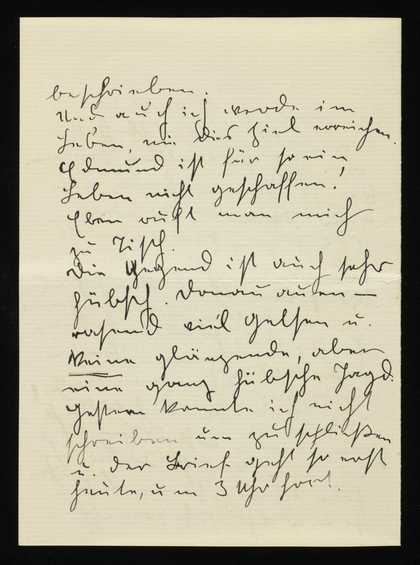 beschrieben.
Und auch ich werde im
Leben, nie dies Ziel erreichen.
Edmund ist für so ein
Leben nicht geschaffen.
Eben ruft man mich
zu Tisch.
Die Gegend ist auch sehr
hübsch. Donau auen –
rasend viel Gelsen u.
keine glänzende, aber
eine ganz hübsche Jagd.
Gestern konnte ich nicht
schreiben um zu schließen
u. der Brief geht so erst
heute, um 3 Uhr fort.